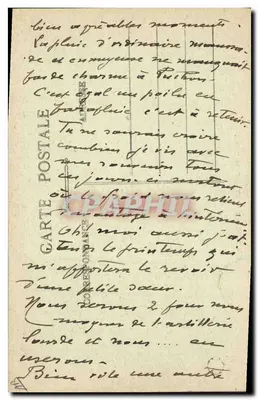 bien agréables moments.
La pluie d'ordinaire maussa-
de et ennuyeuse ne manquait
pas de charme à
C'est égal un poilu en
parapluie c'est à retenir.
Tu ne saurais croire
combien je vis avec
mes souvenirs tous
les jours ci
Oh moi aussi j'at-
tends le printemps qui
m'apportera le revoir
d'une petite sœur.
Nous serons 2 pour nous
moquer de l'artillerie
lourde et nous .... en
userons.
Bien sûr une autre
CARTE POSTALE
CORRESPONDANCE
ADRESSE